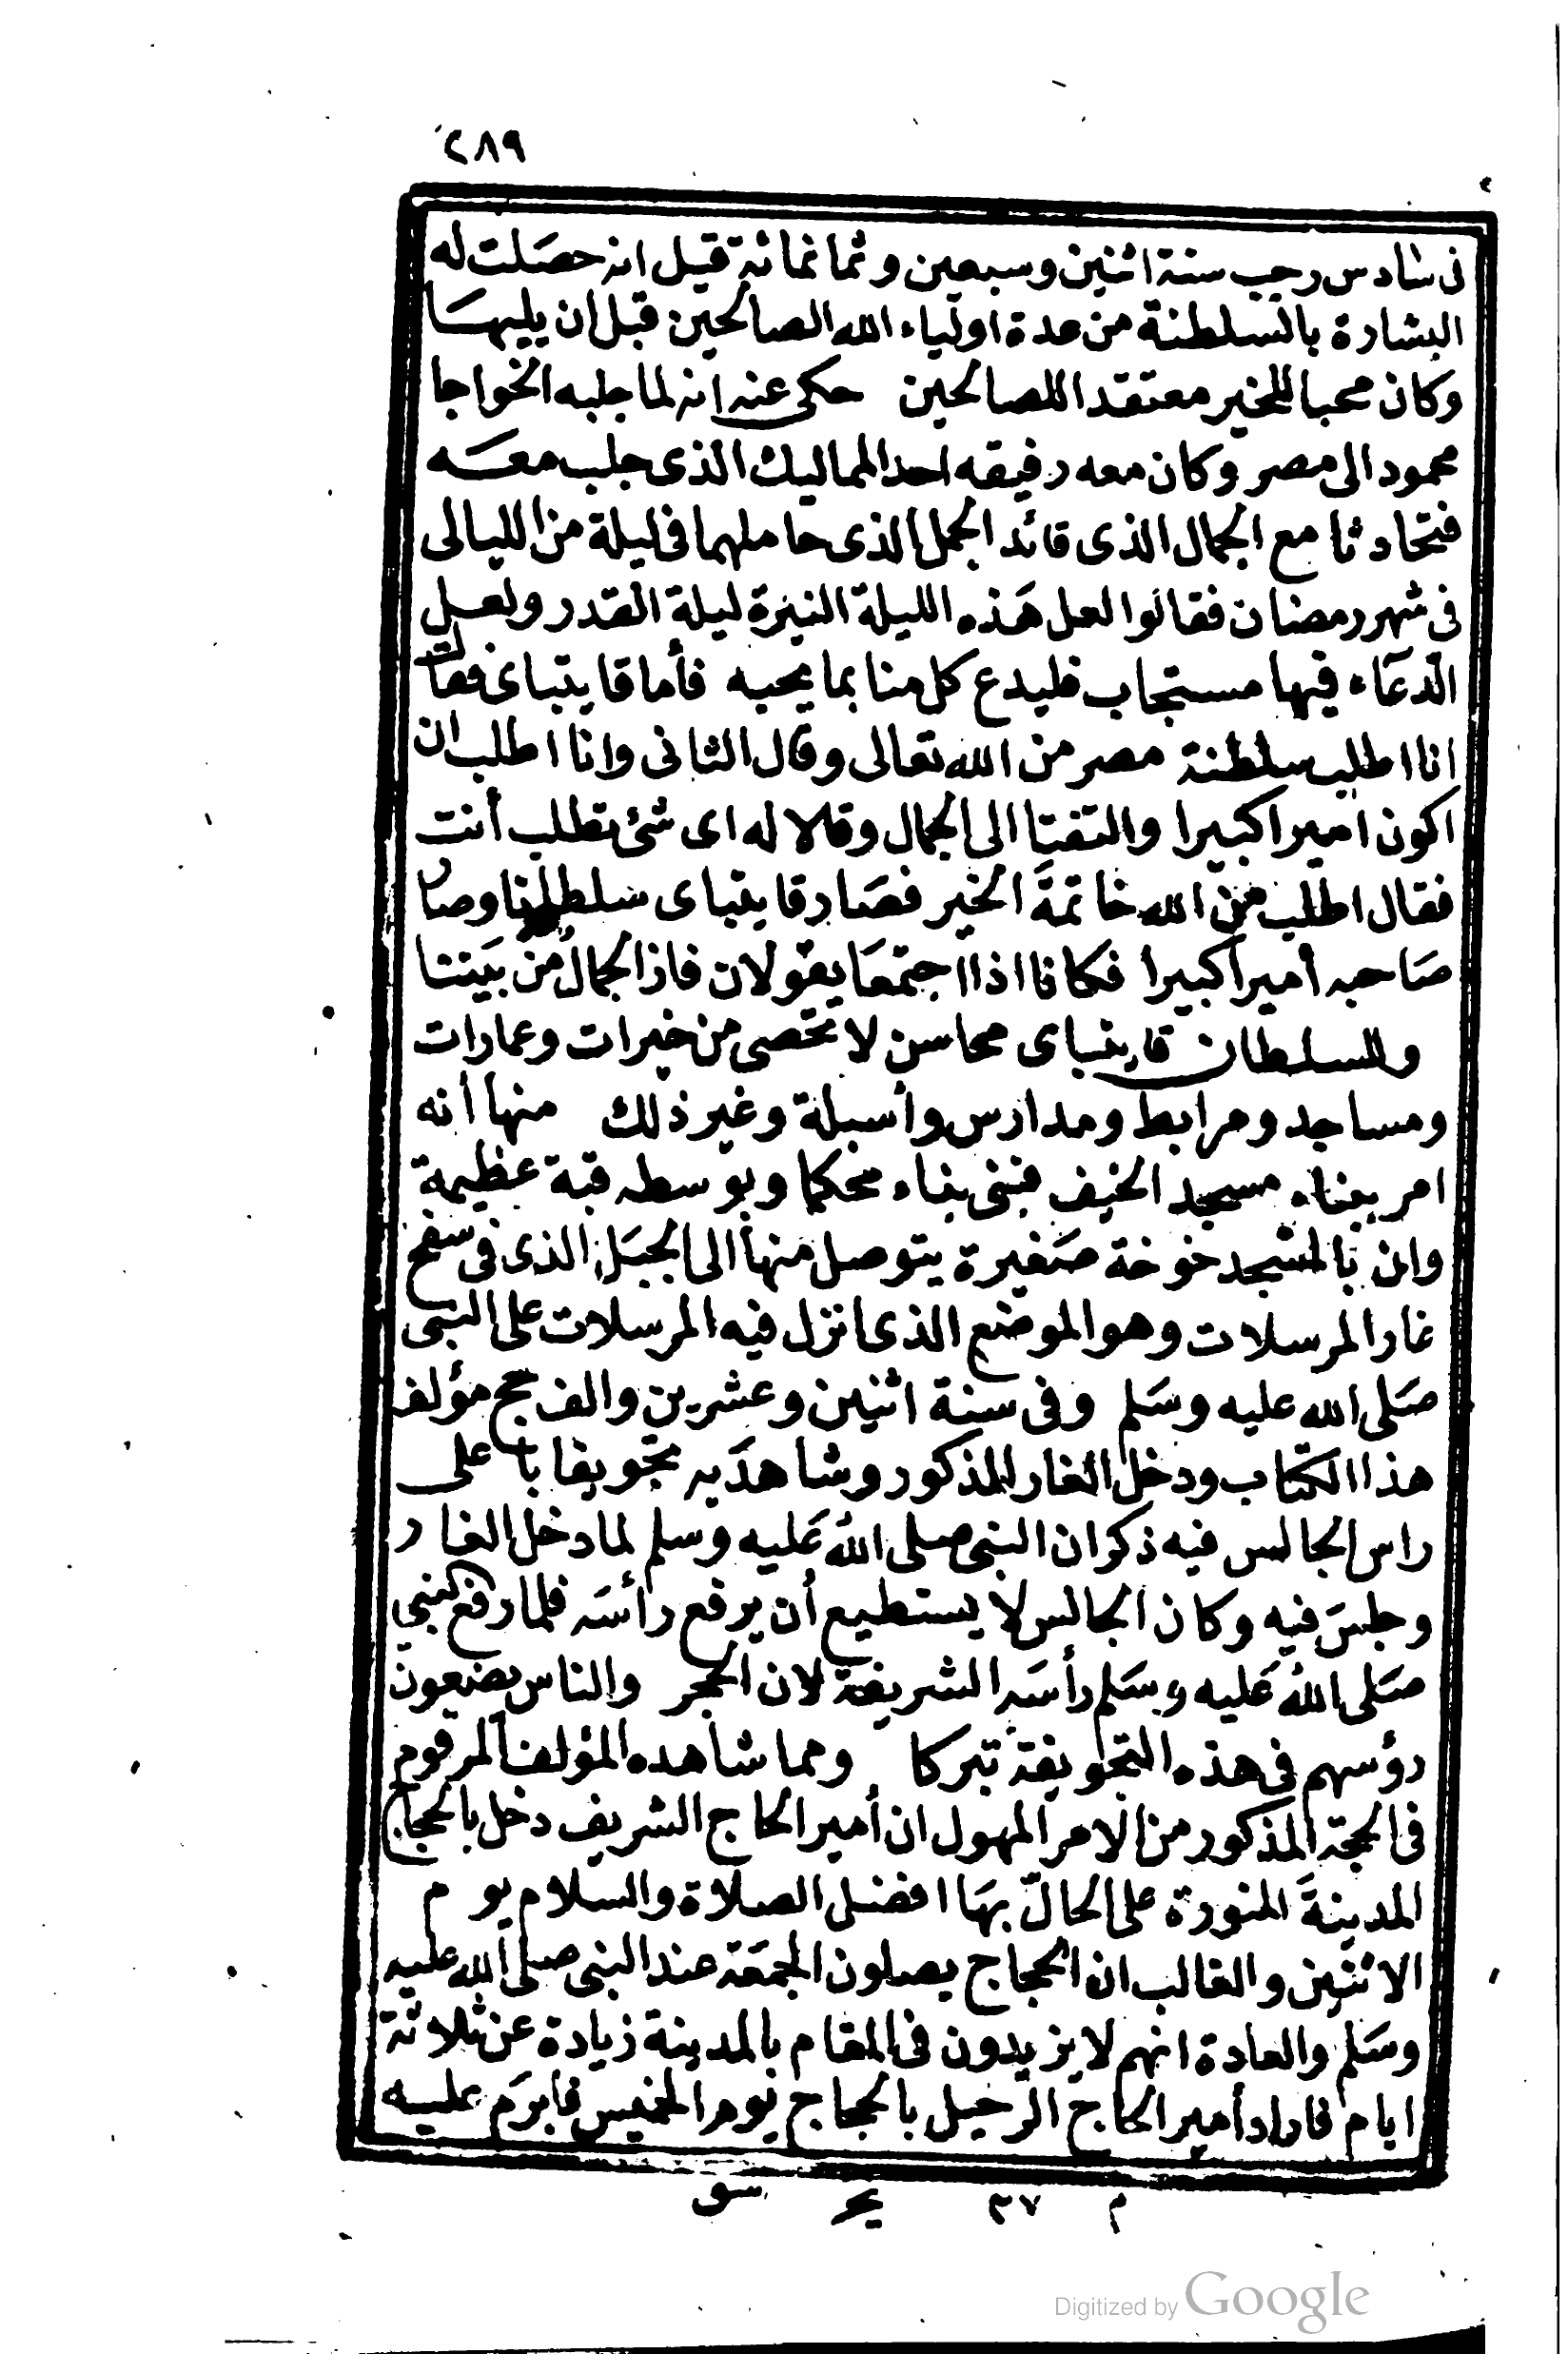 ٢٨٩
فى سادس رجب سنة اثنين وسبعين وثمانمائة قيل انه حصلت له
البشارة بالسلطنة من عدة اولياء الله الصالحين قبل ان يليها
وكان محبا للخير معتقدا للصالحين حكى عنه انه لما جلبه الخواجا
محمود الى مصر وكان معه رفيقه احد المماليك الذى جلب معه
فتحادثا مع الجمال الذى قائد الجمل الذى حاملهما فى ليلة من الليالى
فى شهر رمضان فقالوا لعل هذه الليلة النيرة ليلة القدر ولعل
الدعاء فيها مستجاب فليدع كل منا بما يحبه فأما قايتباى فقال
انا اطلب سلطنة مصر من الله تعالى وقال الثانى وانا اطلب ان
اكون اميرا كبيرا والتفتا الى الجمال وقالا له اى شئ تطلب أنت
فقال اطلب من الله خاتمة الخير فصار قايتباى سلطانا وصار
صاحبه أميرا كبيرا فكانا اذا اجتمعا يقولان فاز الجمال من بيننا
وللسلطان قايتباى محاسن لا تحصى من خيرات وعمارات
ومساجد ومرابط ومدارس وأسبلة وغير ذلك منها أنه
امر ببناء مسجد الخيف فبنى بناء محكما وبوسطه قبة عظيمة
وان بالمسجد خوخة صغيرة يتوصل منها الى الجبل الذى فى سفح
غار المرسلات وهو الموضع الذى انزل فيه المرسلات على النبى
صلى الله عليه وسلم وفى سنة اثنين وعشرين والف حج مؤلف
هذا الكتاب ودخل الغار المذكور وشاهد به تجويفا با على
راس الجالس فيه ذكر ان النبى صلى الله عليه وسلم لما دخل الغار
وجلس فيه وكان الجالس لا يستطيع أن يرفع رأسه فلما رفع النبي
صلى الله عليه وسلم رأسه الشريفة لان الحجر والناس يضعون
رؤسهم فى هذه التجويفة تبركا ومما شاهده المؤلف المرقوم
فى الحجة المذكور من الامر المهول ان أمير الحاج الشريف دخل بالحجاج
المدينة المنورة على الحال بها افضل الصلاة والسلام يوم
الاثنين والغالب ان الحجاج يصلون الجمعة عند النبى صلى الله عليه
وسلم والعادة انهم لا يزيدون فى المقام بالمدينة زيادة عن ثلاثة
ايام فاراد أمير الحاج الرحيل بالحجاج يوم الخميس فابرم عليه
م ٣٧
سو
Digitized by Google